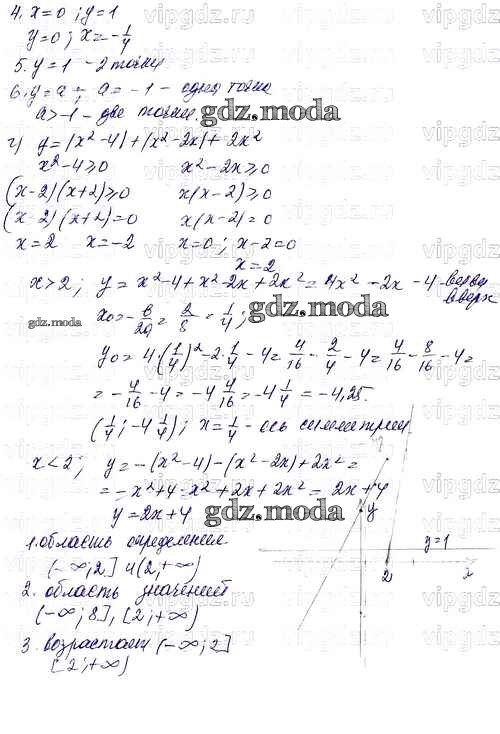 4. x=0; y=1
y=0; x=-1/4
5. y=1 - 2 точки
6. y=a; a=-1 - одна точка
a>-1 - две точки
gdz.moda
г) y=|x²-4|+|x²-2x|+2x²
x²-4≥0 x²-2x≥0
(x-2)(x+2)≥0 x(x-2)≥0
(x-2)(x+2)=0 x(x-2)=0
x=2 x=-2 x=0; x-2=0
x=2
x>2; y=x²-4+x²-2x+2x²=4x²-2x-4 - ветви вверх
gdz.moda x₀=-b/2a=2/8=1/4; gdz.moda
y₀=4·(1/4)²-2·1/4-4=4/16-2/4-4=4/16-8/16-4=
=-4/16-4=-4 4/16=-4 1/4=-4,25.
(1/4; -4 1/4); x=1/4 - ось симметрии
x<2; y=-(x²-4)-(x²-2x)+2x²=
=-x²+4-x²+2x+2x²=2x+4
y=2x+4 gdz.moda y
1. область определения y=1
(-∞;2] и (2;+∞) 2 x
2. область значений
(-∞;8], [2;+∞)
3. возрастает (-∞;2]
[2;+∞) gdz.moda
vipgdz.com